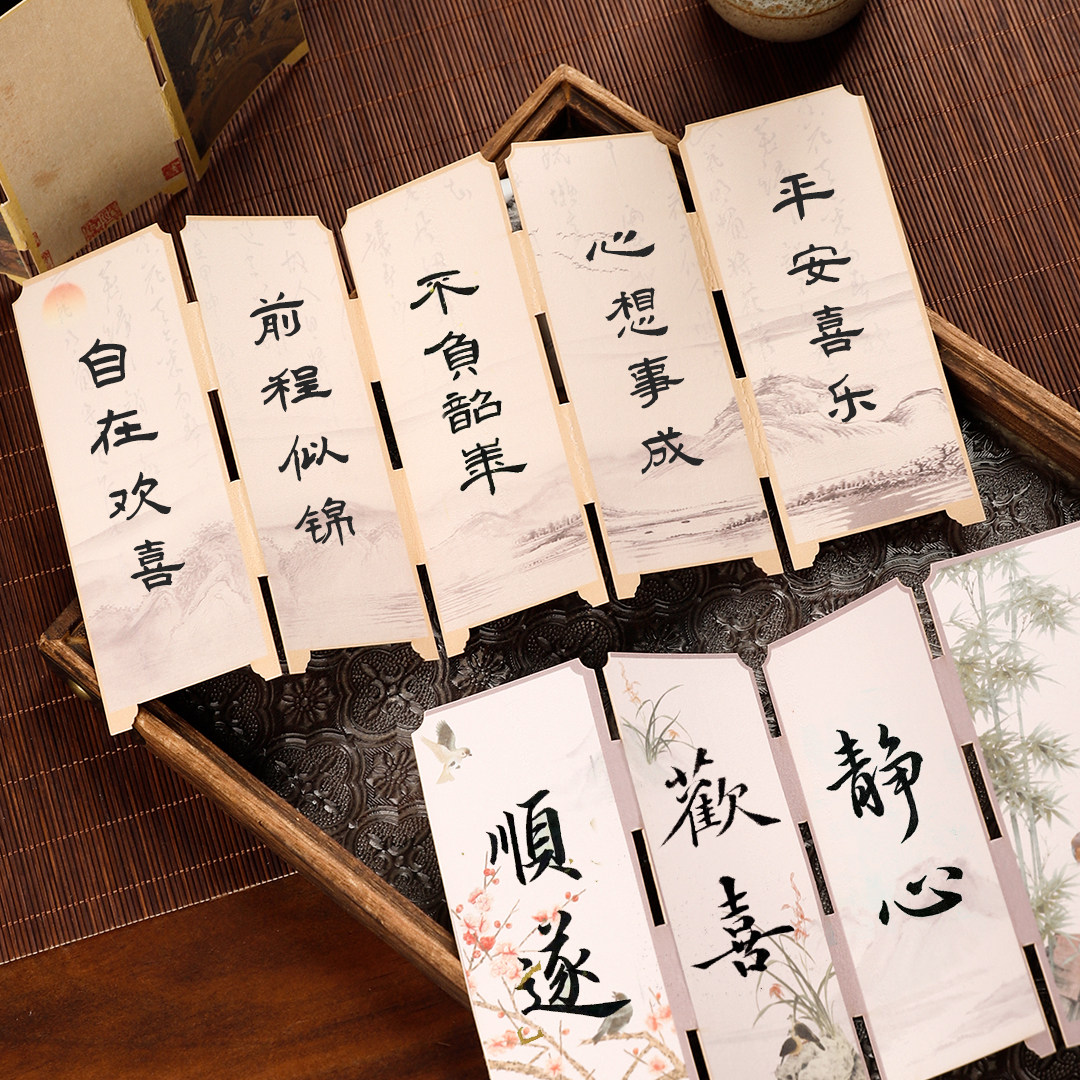 平安喜乐
心想事成
不負韶華
前程似锦
自在欢喜
静心
歡喜
順遂